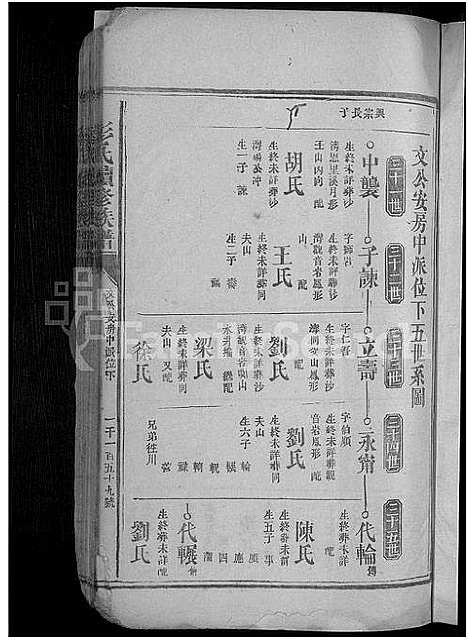 文公安房中派位下五世系圖
三十一世
三十二世
三十三世
三十四世
三十五世
興宗長子
中襲
生終未詳葬沙
灣恩里溪月形
壬山丙向 配
胡氏
生終未詳葬沙
灣楊公沖
生一子 諫
子諫
字師岩
生終未詳葬沙
灣觀音岩鳳形
山 配
王氏
生終未詳葬同
夫山
生二子 壽
立壽
字仁吾
生終未詳葬沙
灣同立山鳳形
配
劉氏
生終未詳葬沙
灣觀音岩獅山
梁氏
生終未詳葬同
夫山 又配
徐氏
永甯
字伯順
生終未詳葬觀
音岩鳳形 配
劉氏
生終未詳葬同
夫山
生六子 輪
輾 輗 輔
祿 榮
兄弟徙川
代輪
生終葬未詳
配
陳氏
生終葬未詳
生五子 事
廣 應 四
代輾
生終葬未詳
劉氏
彭氏續修族譜
文公安房中派位下
一千一百五十九號